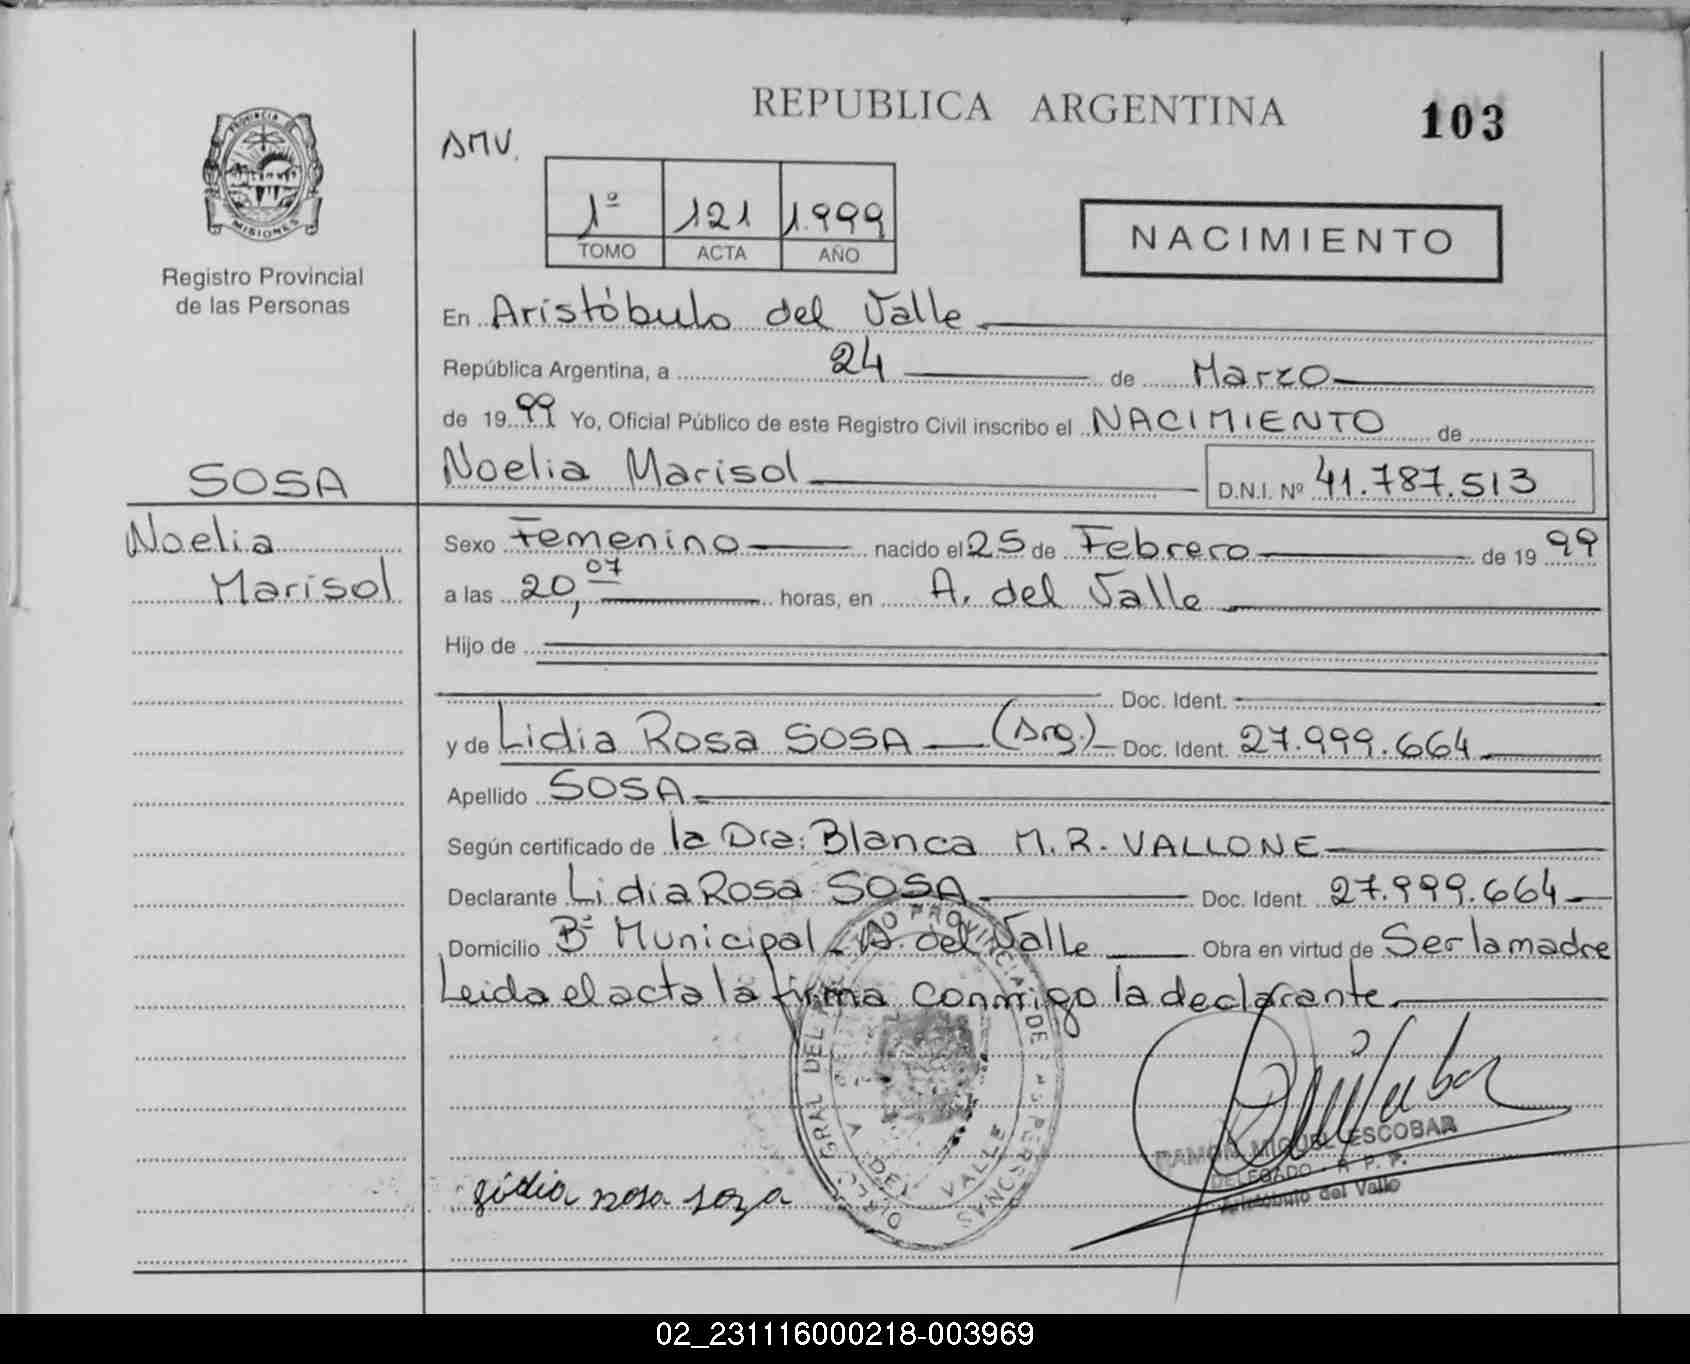 REPUBLICA ARGENTINA
103
PROVINCIA DE
MISIONES
Registro Provincial
de las Personas
AMV.
1º 121 1.999
TOMO ACTA AÑO
NACIMIENTO
En Aristóbulo del Valle
República Argentina, a 24 de Marzo
de 1999 Yo, Oficial Público de este Registro Civil inscribo el NACIMIENTO de
SOSA
Noelia Marisol D.N.I. Nº 41.787.513
Noelia
Marisol
Sexo Femenino nacido el 25 de Febrero de 1999
a las 20,07 horas, en A. del Valle
Hijo de
Doc. Ident.
y de Lidia Rosa SOSA (Arg.) Doc. Ident. 27.999.664
Apellido SOSA
Según certificado de la Dra: Blanca M.R. VALLONE
Declarante Lidia Rosa SOSA Doc. Ident. 27.999.664
Domicilio Bº Municipal - A. del Valle Obra en virtud de Ser la madre
Leida el acta la firma conmigo la declarante.
RAMON MIGUEL ESCOBAR
DELEGADO - R. P. P.
Aristóbulo del Valle
lidia rosa soza
02_231116000218-003969